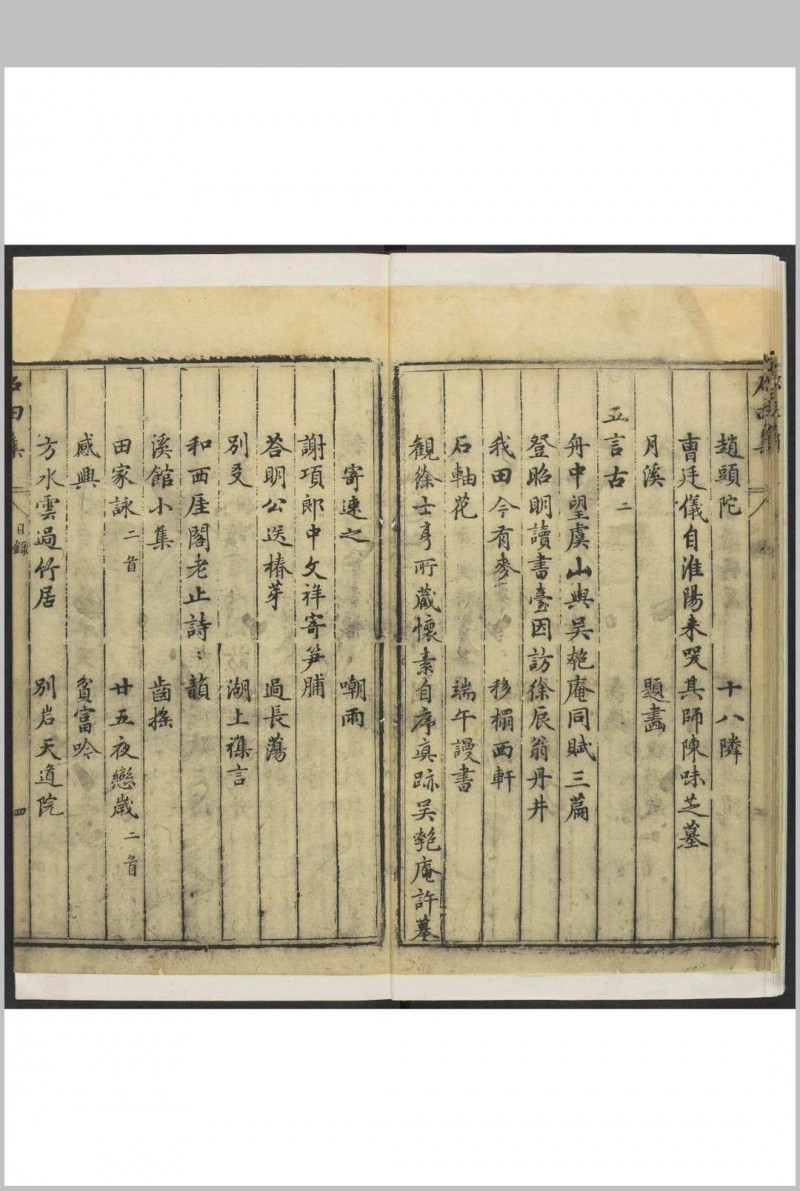 趙頭陀　十八隣
曹廷儀自淮陽来哭其師陳味芝墓
月溪　題畫
五言古二
舟中望虞山與吳匏庵同賦三篇
登昭明讀書臺因訪徐辰翁丹井
我田今有麥　移榻西軒
石軸花　端午謾書
觀徐士亨所藏懷素自序真跡吳匏庵許摹
寄速之　嘲雨
謝項郎中文祥寄笋脯
荅明公送椿芽　過長蕩
別叐　湖上襍言
和西厓閣老止詩〻韻
溪館小集　齒搖
田家詠二首　廿五夜戀嵗二首
感興　貧富吟
方水雲過竹居　別岩天道院
石田集　目錄　四